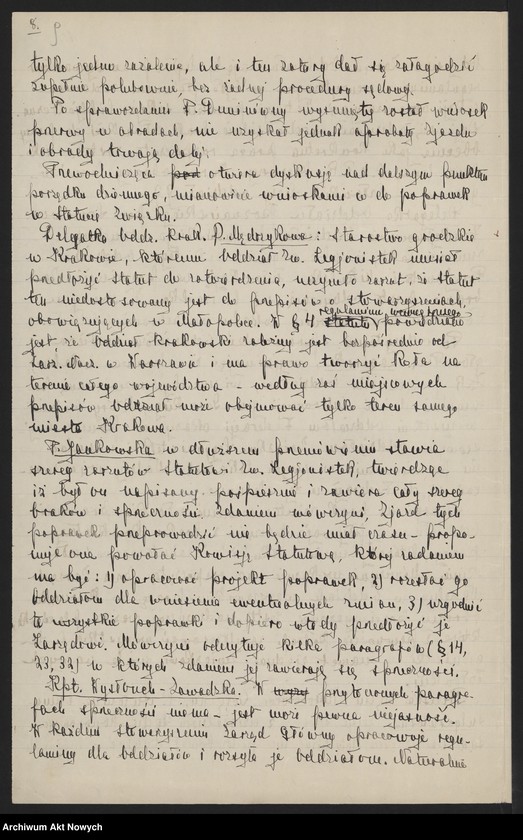 8. 9
tylko jedno zażalenie, ale i ten zatarg dał się załagodzić
zupełnie polubownie, bez żadnej procedury sądowej.
Po sprawozdaniu P. Duninówny wysunięty został wniosek
przerwy w obradach, nie uzyskał jednak aprobaty Zjazdu
i obrady trwają dalej.
Przewodnicząca pod otwiera dyskusję nad dalszym punktem
porządku dziennego, mianowicie wnioskami w do poprawek
w Statucie Związku.
Delegatka oddz. Krak. P. Mędrzykowa: Starostwo grodzkie
w Krakowie, któremu oddział Zw. Legjonistek musiał
przedłożyć statut do zatwierdzenia, uczyniło zarzut, że statut
ten niedostosowany jest do przepisów o stowarzyszeniach,
obowiązujących w Małopolsce. W § 4 statutu regulaminu wewnętrznego powiedziano
jest, że oddział krakowski zależny jest bezpośrednio od
Zarz. Nacz. w Warszawie i ma prawo tworzyć Koła na
terenie całego województwa - według zaś miejscowych
przepisów oddział może obejmować tylko teren samego
miasta Krakowa.
P. Jankowska w dłuższem przemówieniu stawia
szereg zarzutów Statutowi Zw. Legjonistek, twierdząc
iż był on napisany pośpiesznie i zawiera cały szereg
braków i sprzeczności. Zdaniem mówczyni, Zjazd tych
poprawek przeprowadzić nie będzie miał czasu - propo-
nuje ona powołać Komisję Statutową, której zadaniem
ma być: 1) opracować projekt poprawek, 2) rozesłać go
oddziałom dla wniesienia ewentualnych zmian, 3) uzgodnić
te wszystkie poprawki i dopiero wtedy przedłożyć je
Zarządowi. Mówczyni odczytuje kilka paragrafów (§ 14,
23, 32) w których zdaniem jej zawierają się sprzeczności.
Kpt. Wysłouch-Zawadzka. W przytoczonych paragra-
fach sprzeczności niema - jest może pewna niejasność.
W każdem stowarzyszeniu Zarząd Główny opracowuje regu-
laminy dla oddziałów i rozsyła je oddziałom. Naturalnie
Archiwum Akt Nowych